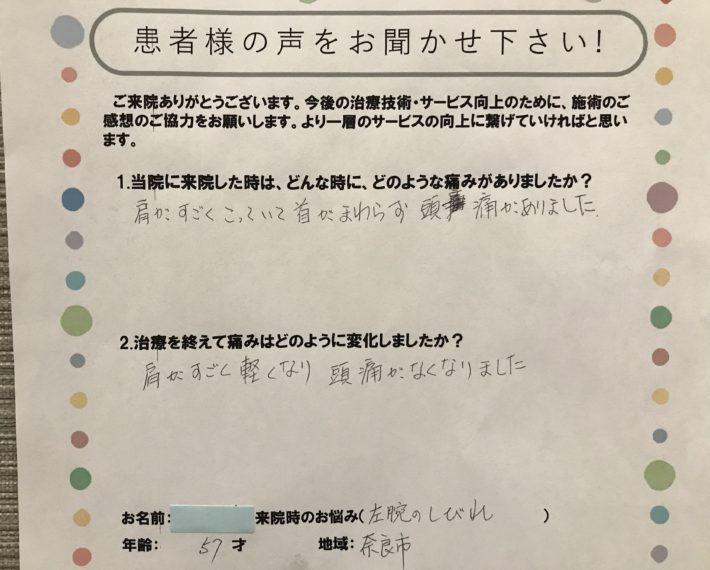 患者様の声をお聞かせ下さい!
ご来院ありがとうございます。今後の治療技術・サービス向上のために、施術のご
感想のご協力をお願いします。より一層のサービスの向上に繋げていければと思い
ます。
1.当院に来院した時は、どんな時に、どのような痛みがありましたか?
肩がすごくこっていて首がまわらず 頭痛がありました.
2.治療を終えて痛みはどのように変化しましたか?
肩がすごく軽くなり 頭痛がなくなりました
お名前: 来院時のお悩み(左腕のしびれ )
年齢: 57 才 地域: 奈良市